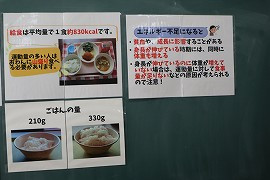 給食は平均量で1食約830kcalです。
運動量の多い人は
おわんに山盛り食べ
る必要があります。
ごはんの量
210g
330g
エネルギー不足になると
貧血や、成長に影響することがある
身長が伸びている時期には、同時に
体重を増える
身長が伸びているのに体重が増え
ていない場合は、運動量に対して食事
量が足りないなどの原因が考えられる
ので注意！